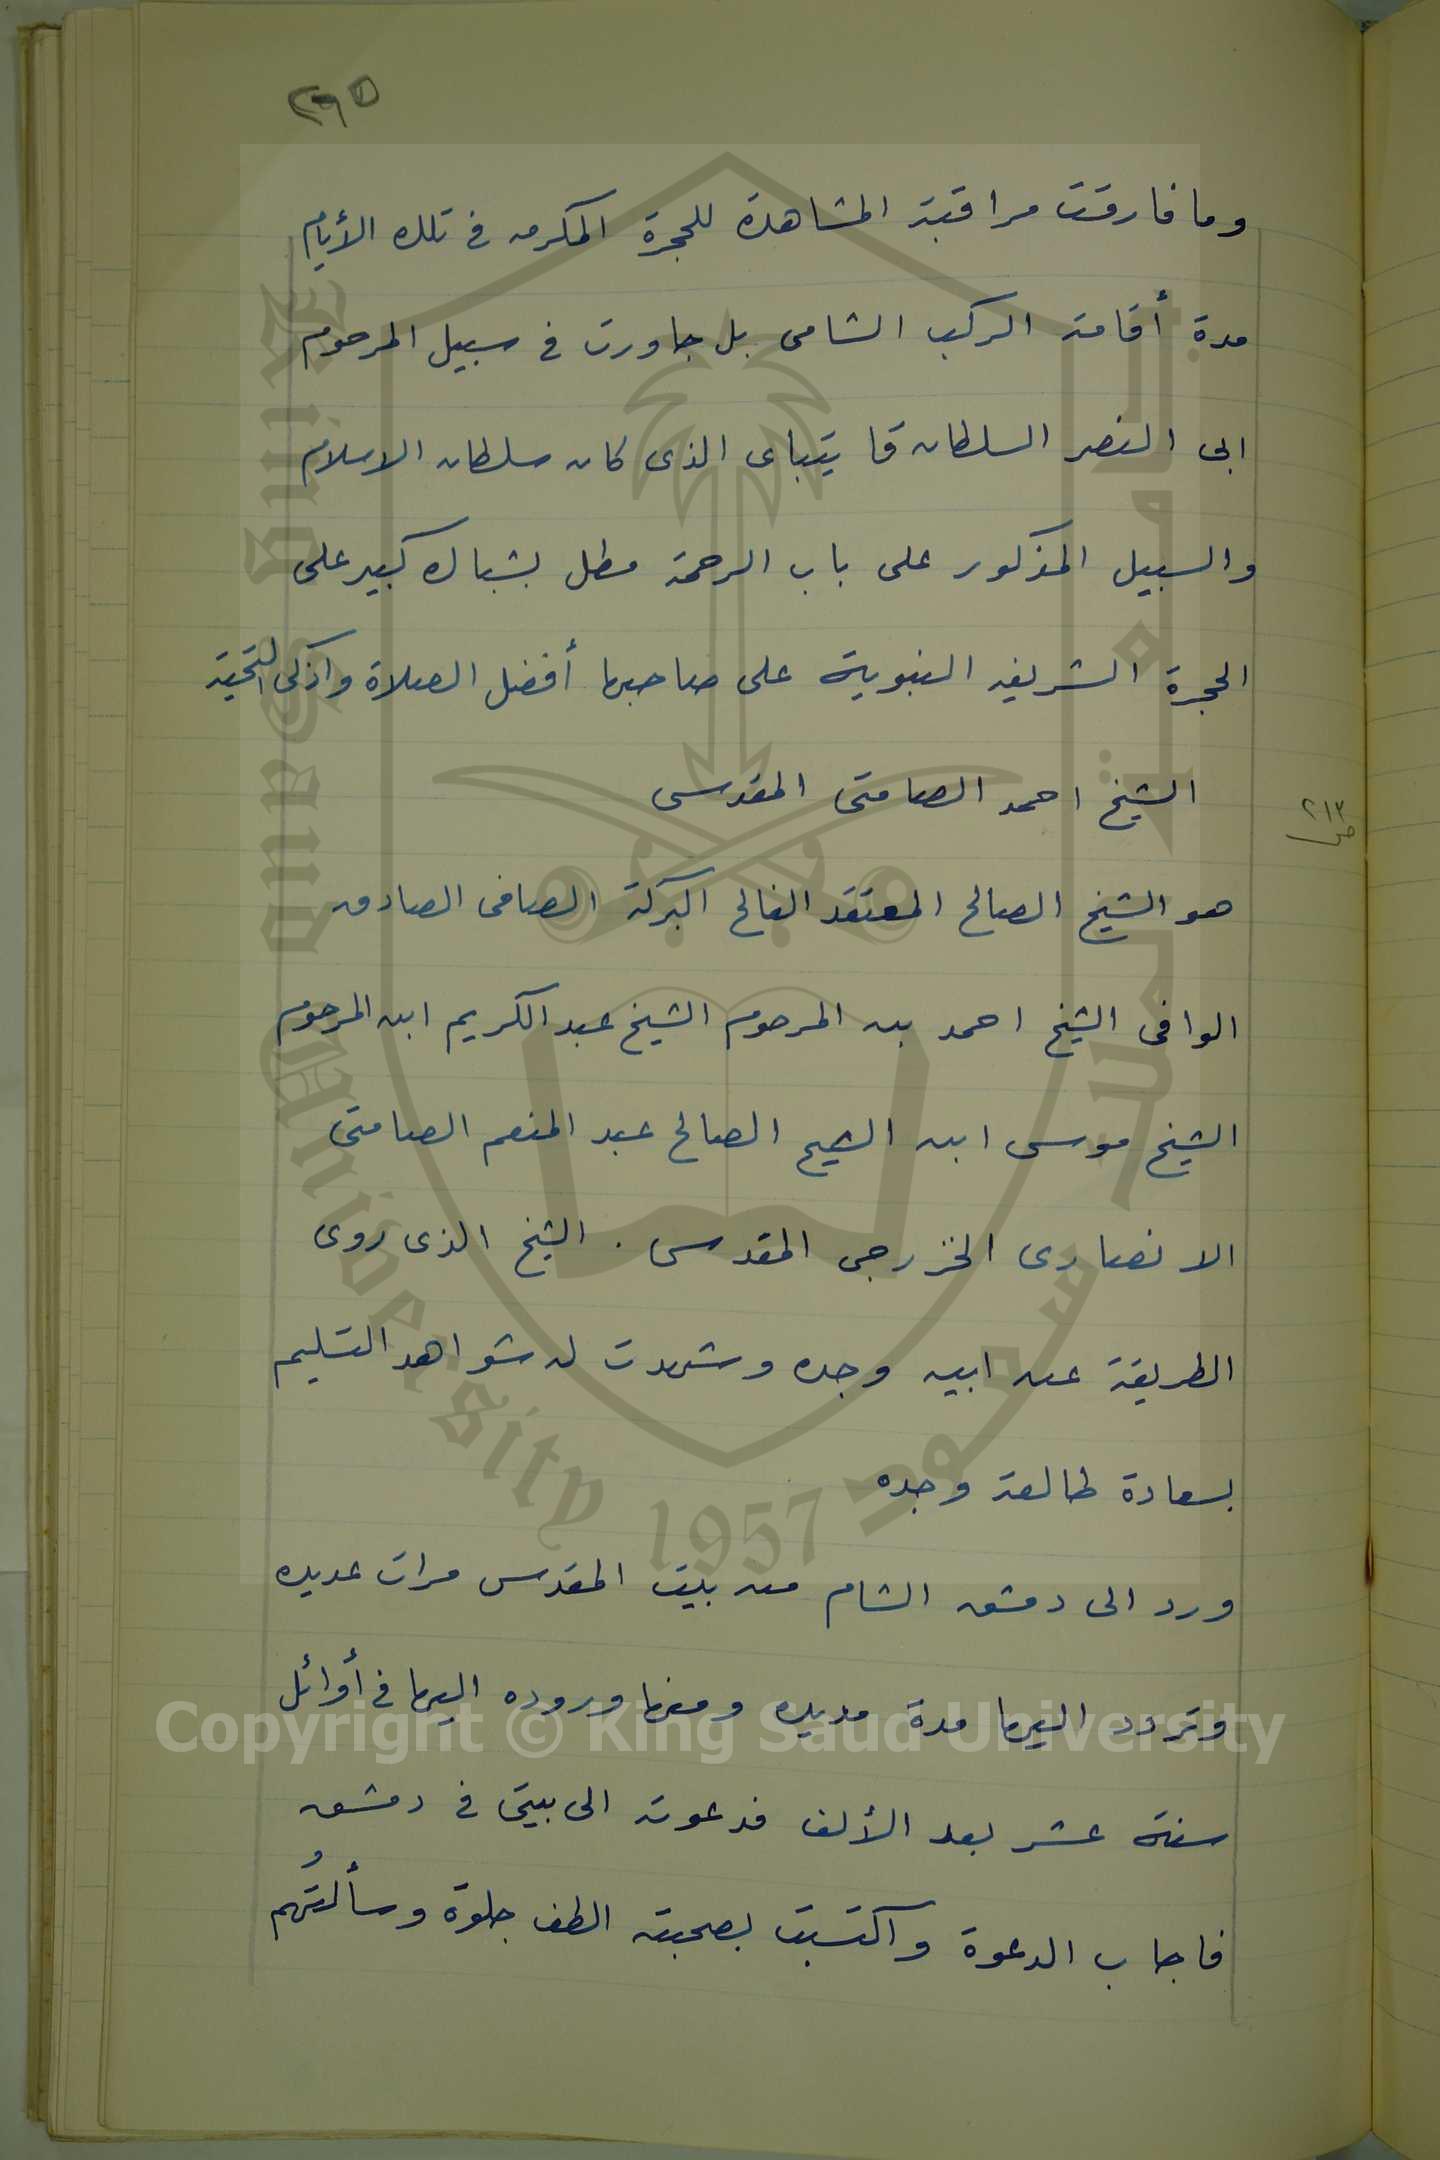 ٢٩٥
وما فارقت مراقبة المشاهدة للحجرة المكرمه فى تلك الأيام
مدة أقامة الركب الشامى بل جاورت فى سبيل المرحوم
ابى النصر السلطان قايتباى الذى كان سلطان الاسلام
والسبيل المذكور على باب الرحمة مطل بشباك كبير على
الحجرة الشريفه النبوية على صاحبها أفضل الصلاة واذكى التحية
الشيخ احمد الصامتى المقدسى
ص ٢١٣
هو الشيخ الصالح المعتقد الفالح البركة الصافى الصادق
الوافى الشيخ احمد بن المرحوم الشيخ عبد الكريم ابن المرحوم
الشيخ موسى ابن الشيخ الصالح عبد المنعم الصامتى
الانصارى الخزرجى المقدسى . الشيخ الذى روى
الطريقة عن ابيه وجده وشهدت له شواهد التسليم
بسعادة طالعة وجده
ورد الى دمشق الشام من بيت المقدس مرات عديده
وتردد اليها مدة مديده ومنها وروده اليها فى أوائل
سنة عشر بعد الألف فدعوته الى بيتى فى دمشق
فاجاب الدعوة واكتسبت بصحبته الطف جلوة وسألتُهم
جامعة الملك سعود
King Saud University
1957
Copyright © King Saud University